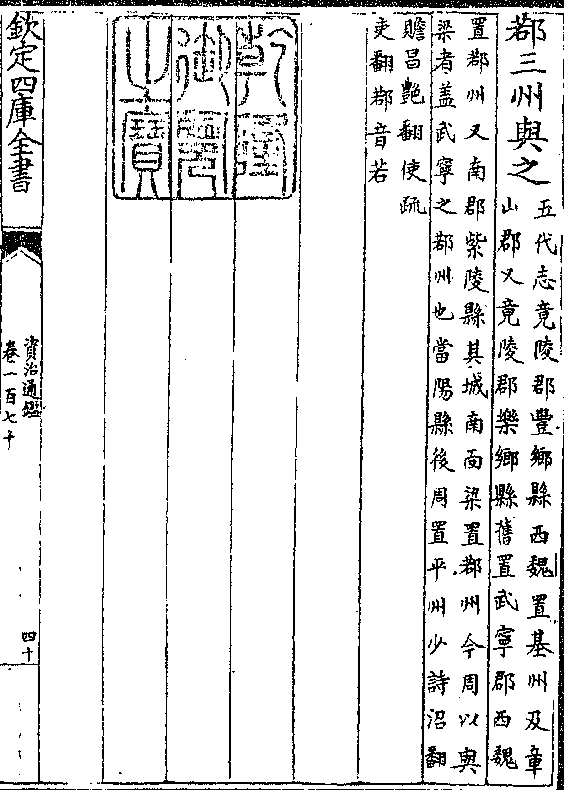 鄀三州與之
五代志竟陵郡豐鄉縣西魏置基州及章
山郡又竟陵郡樂鄉縣舊置武寧郡西魏
置鄀州又南郡紫陵縣其城南面梁置鄀州今周以與
梁者盖武寧之鄀州也當陽縣後周置平州少詩沼翻
贍昌艷翻使疏
吏翻鄀音若
乾隆
御覽
之寶
欽定四庫全書
資治通鑑
卷一百七十
四十